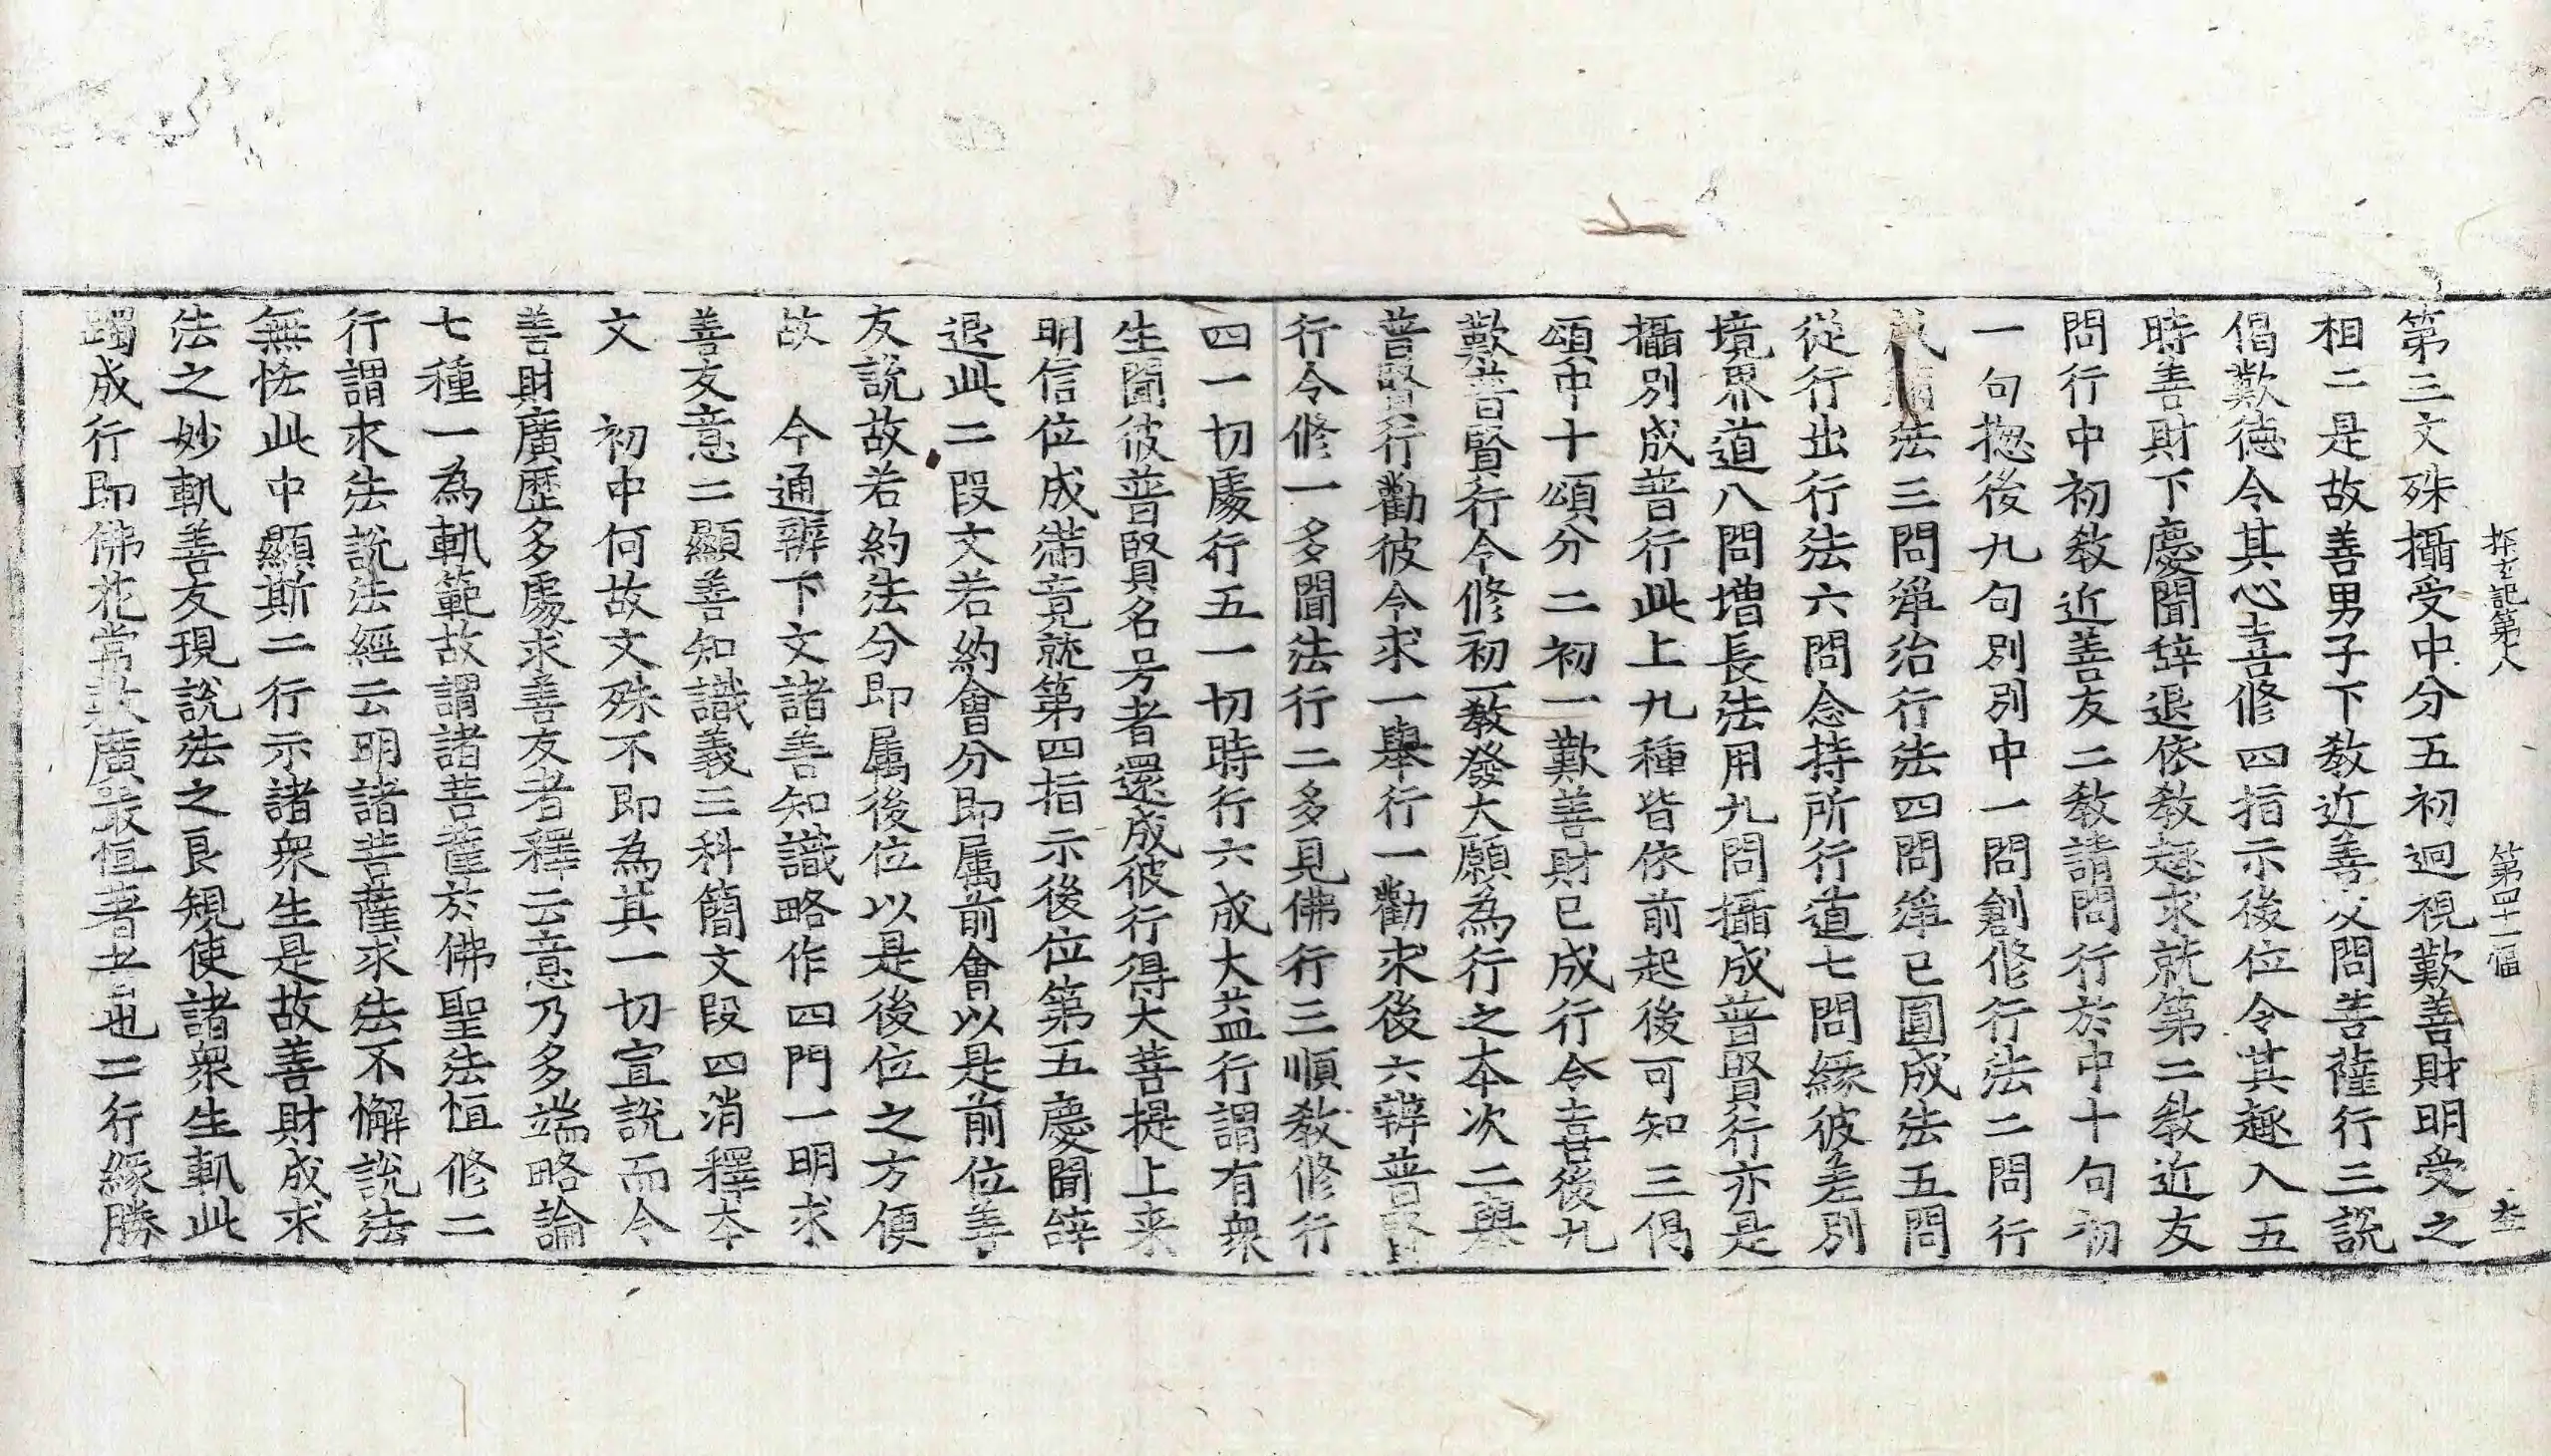 探玄記第十八　第四十一幅　杢
第三文殊攝受中分五初迴視歎善財明受之
相二是故善男子下教近善友問菩薩行三說
偈歎德令其心喜修四指示後位令其趣入五
時善財下慶聞辝退依教趣求就第二教近友
問行中初教近善友二教請問行於中十句初
一句揔後九句別別中一問創修行法二問行
成滿法三問淨治行法四問淨已圓成法五問
從行出行法六問念持所行道七問緣彼差別
境界道八問增長法用九問攝成普賢行亦是
攝別成普行此上九種皆依前起後可知三偈
頌中十頌分二初一歎善財已成行令喜後九
歎普賢行令修初一教發大願為行之本次二舉
普賢行勸彼令求一舉行一勸求後六辨普賢
行令修一多聞法行二多見佛行三順教修行
四一切處行五一切時行六成大益行謂有衆
生聞彼普賢名号者還成彼行得大菩提上来
明信位成滿竟就第四指示後位第五慶聞辝
退此二段文若約會分即属前會以是前位善
友說故若約法分即属後位以是後位之方便
故　今通辨下文諸善知識略作四門一明求
善友意二顯善知識義三科簡文段四消釋本
文　初中何故文殊不即為其一切宣說而令
善財廣歷多處求善友者釋云意乃多端略論
七種一為軌範故謂諸菩薩於佛聖法恒修二
行謂求法說法經云明諸菩薩求法不懈說法
無恡此中顯斯二行示諸衆生是故善財成求
法之妙軌善友現說法之良規使諸衆生軌此
躅成行即佛花常敷廣嚴恒著者也二行緣勝